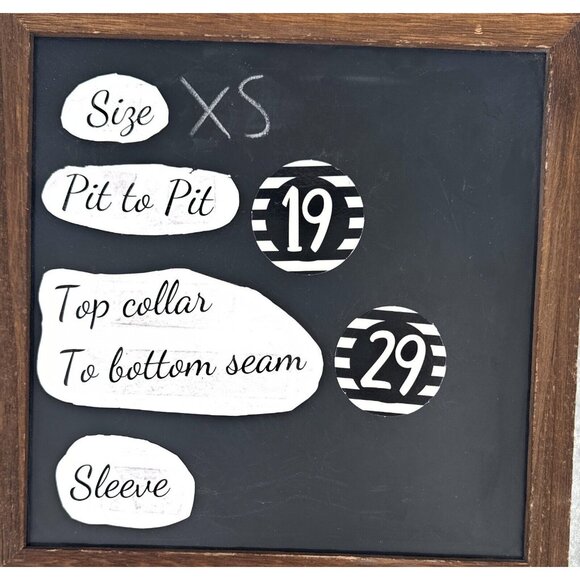 Size XS
Pit to Pit 19
Top collar
To bottom seam 29
Sleeve